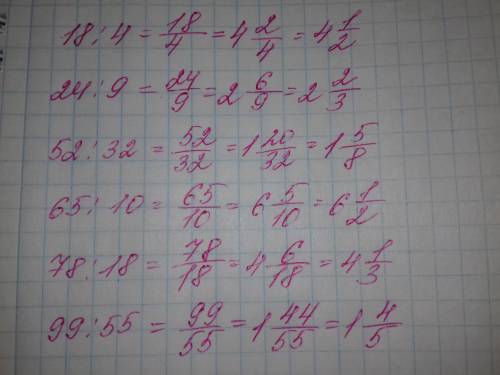 18:4 = 18/4 = 4 2/4 = 4 1/2
24:9 = 24/9 = 2 6/9 = 2 2/3
52:32 = 52/32 = 1 20/32 = 1 5/8
65:10 = 65/10 = 6 5/10 = 6 1/2
78:18 = 78/18 = 4 6/18 = 4 1/3
99:55 = 99/55 = 1 44/55 = 1 4/5